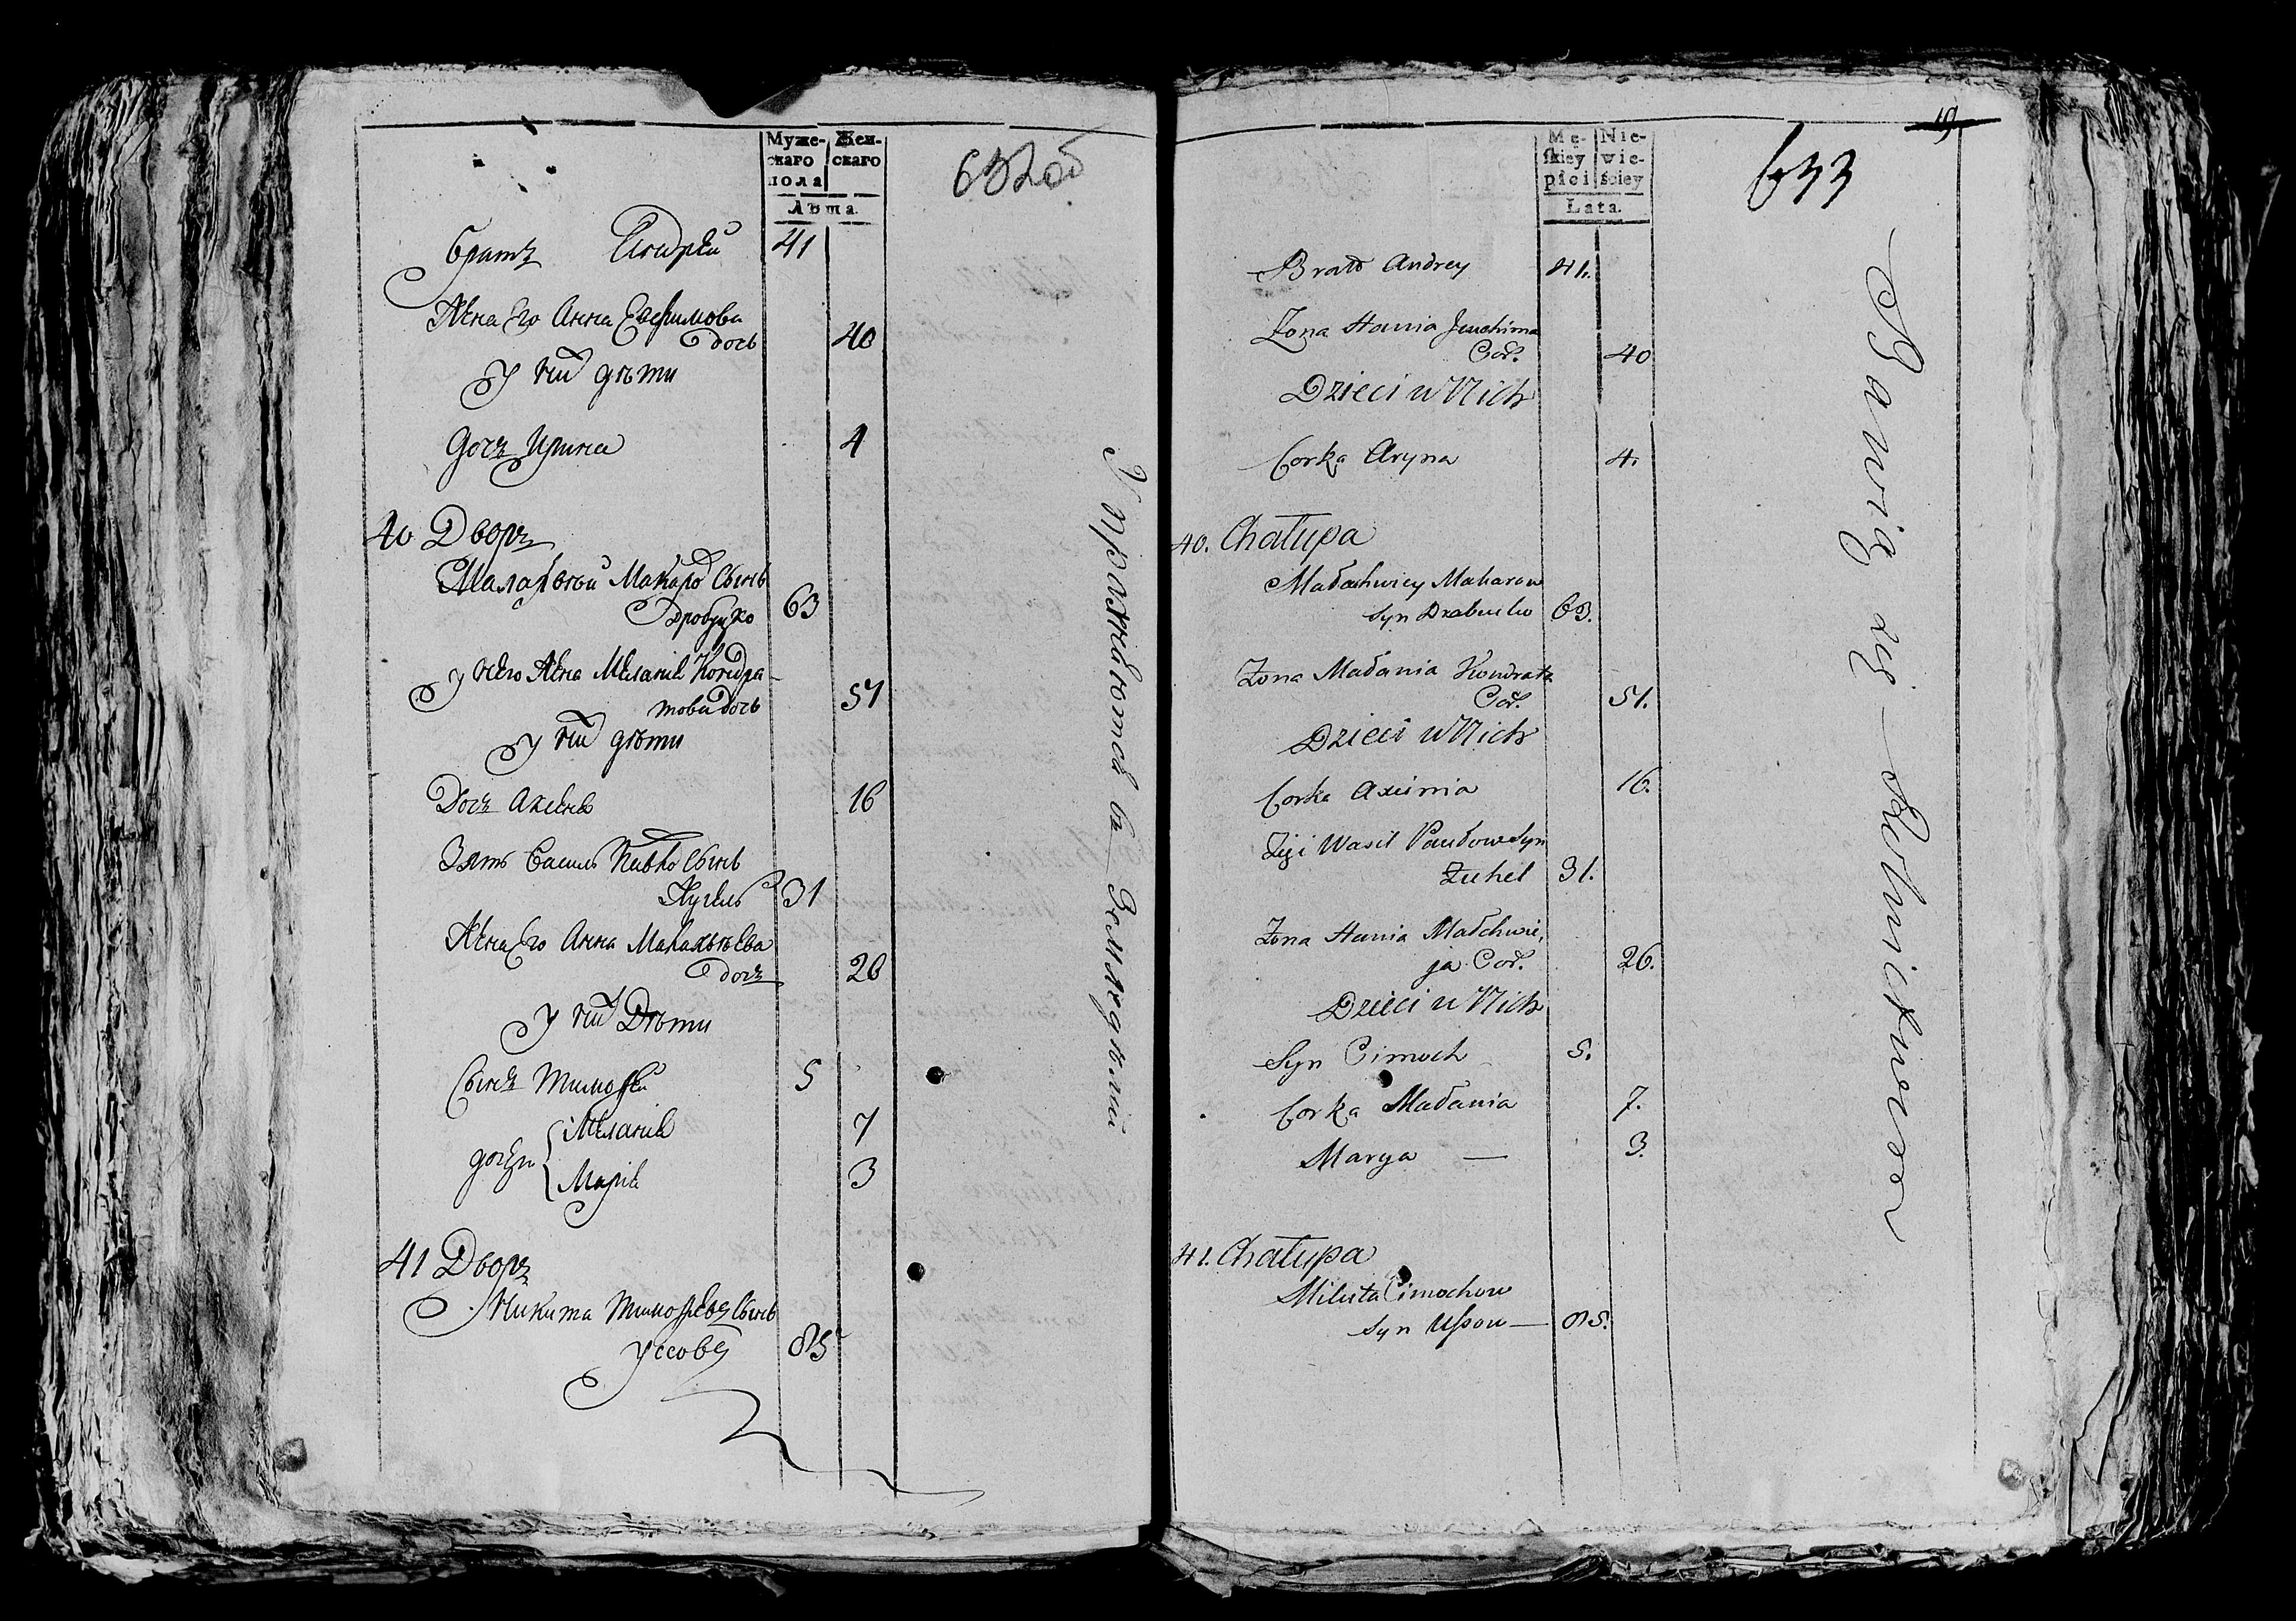 Муже- Жен-
скаго скаго
пола
Лѣта.
632об
братъ Андрей 41
Жена Его Анна Евфимова
дочь 40
У них дѣти
дочь Ирина 4
40 Дворъ
Малафѣй Макаров Сынъ
Дробушко 63
У него Жена Меланія Кондра-
това дочь 51
У них дѣти
Дочь Аксенья 16
Зять Василь Павлов Сынъ
Жугель 31
Жена Его Анна Малахвѣева
дочь 26
У них Дѣти
Сынъ Тимофей 5
дочери Меланія 7
Марія 3
41 Дворъ
Никита Тимофеевъ Сынъ
Уссовъ 85
Упражняются в Земледѣлии
Mę- Nie-
skiey wie-
płci ściey
Lata.
19
633
Brat Andrey 41.
Zona Hania Jeuchima
Cor. 40
Dzieci u Nich
Corka Aryna 4.
40. Chałupa
Małachwiey Makarow
Syn Drabuszko 63.
Zona Małania Kondrata
Cor. 51.
Dzieci u Nich
Corka Axinia 16.
Zięć Wasil Pawłow Syn
Zuhel 31.
Zona Hania Małchwie,
ja Cor. 26.
Dzieci u Nich
Syn Cimoch 5.
Corka Małania 7.
Marya — 3.
41. Chałupa
Mikita Cimochow
Syn Ussow — 85.
Bawią się Rolnictwem